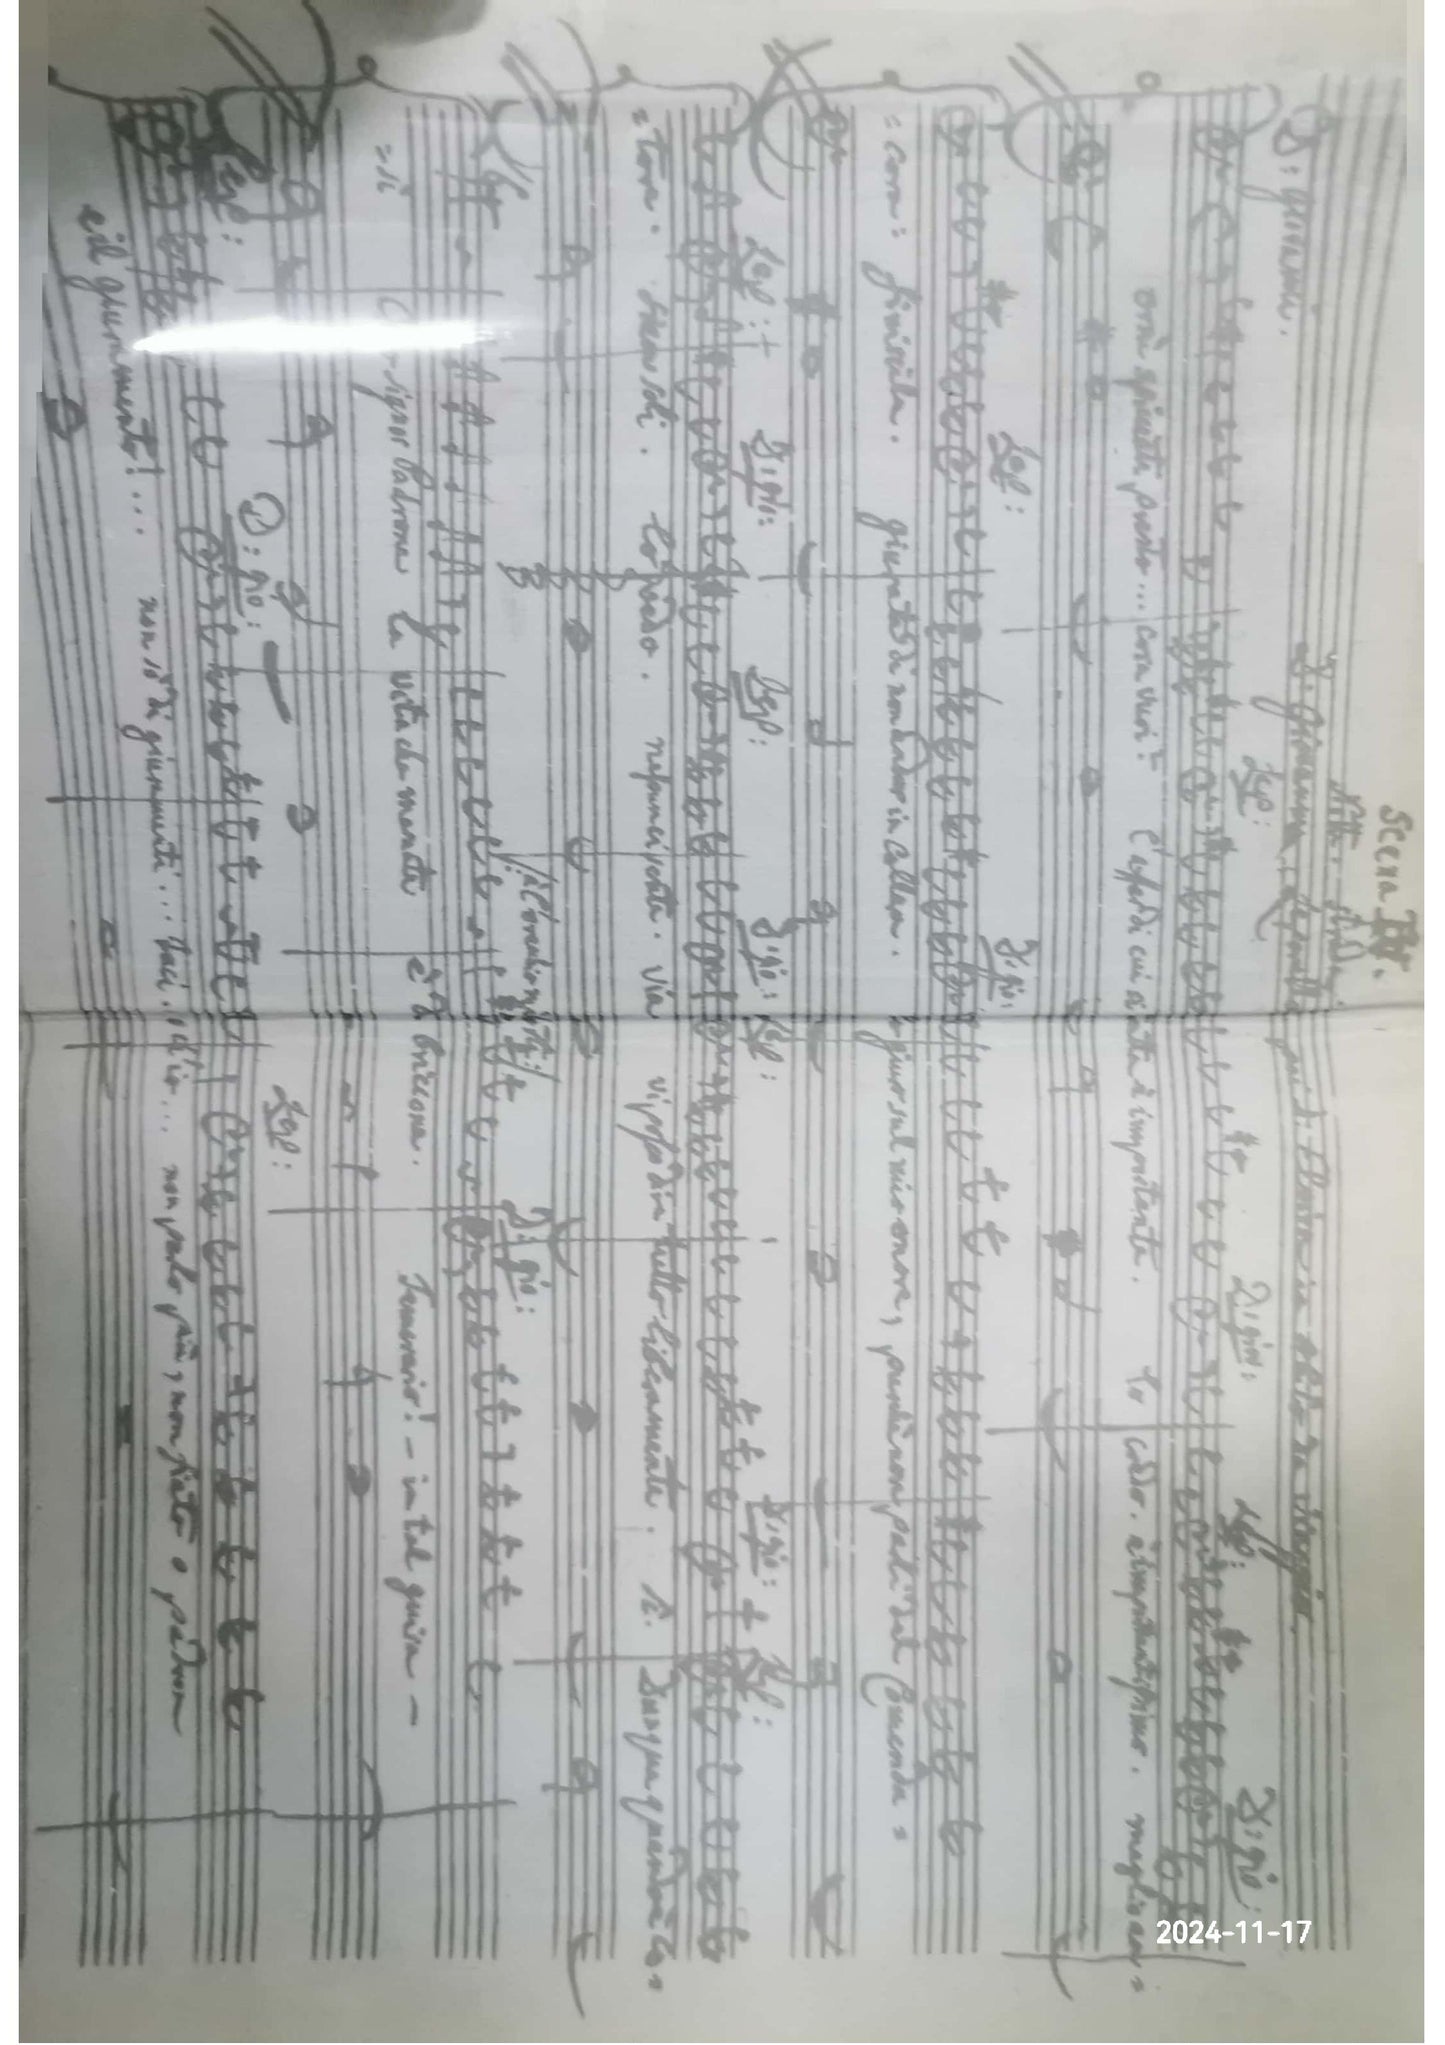 Scena IV.
Notte. Strada.
D. Giovanni, Leporello, poi D. Elvira in abito da viaggio.
Lep: D: gio: Lep: D: gio:
D: giovanni.
orsù spicciati presto... cosa vuoi? l'affar di cui si tratta è importante. lo credo. è importantissimo. meglio an=
Lep: D: gio:
=cora: finiscila. giurate di non andar in collera. lo giuro sul mio onore, purchè non parli del Comenda=
Lep: D: gio: Lep: D: gio: Lep: D: gio: Lep:
=tore. siam soli. lo vedo. nessun ci sente. via vi posso dir tutto liberamente. sì. Dunque quando è co=
/all'orecchio ma forte/ D: gio:
=sì Caro signor Padrone la vita che menate è da briccone. Temerario! - in tal guisa -
Lep: D: gio: Lep:
e il giuramento!... non so di giuramenti... taci. o ch'io... non parlo più, non fiato o padron
2024-11-17